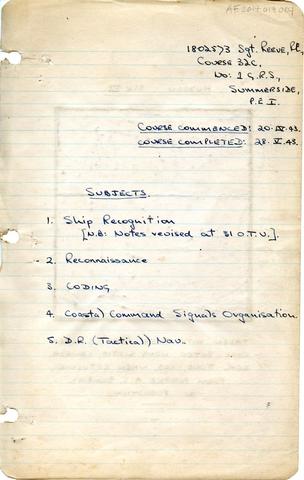 AE2017.019.007
1802573 Sgt. Reeve, R.L,
Course 32C,
No: 1 G.R.S.,
SUMMERSIDE,
P.E.I.
COURSE COMMENCED: 20.IV.43.
COURSE COMPLETED: 28.V.43.
SUBJECTS.
1. Ship Recognition
[N.B: Notes revised at 31 O.T.U.].
2. Reconnaissance
3. CODING
4. Coastal Command Signals Organisation.
5. D.R. (Tactical) Nav.